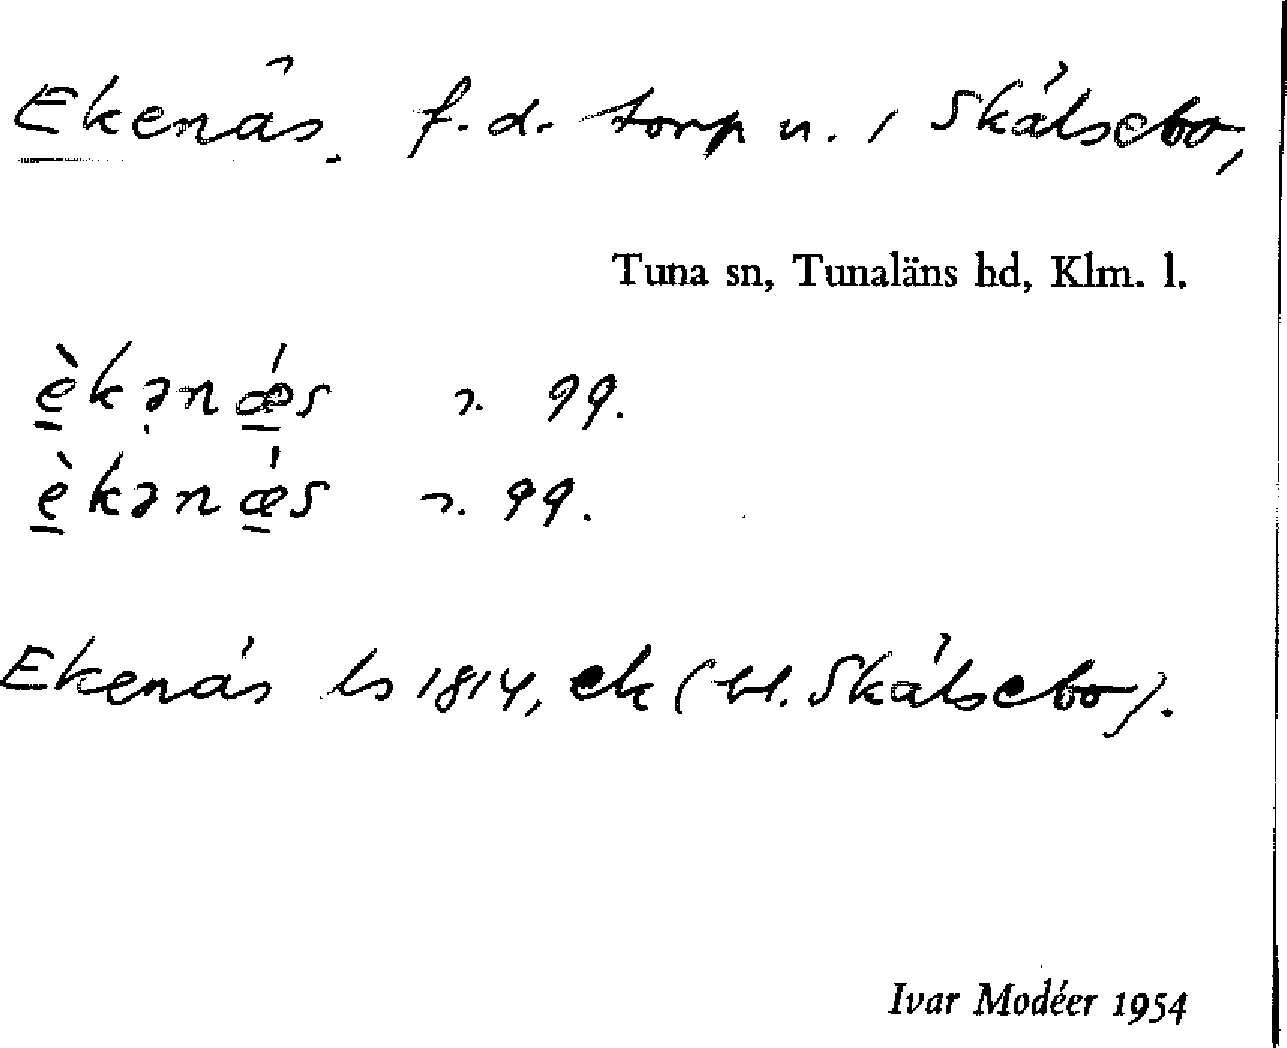 Ekenäs. f.d. torp u. / Skälsebo,
Tuna sn, Tunaläns hd, Klm. l.
è̱kənǽ̱s 99.
è̱kənǽ̱s 99.
Ekenäs ls 1814, ek (bl. Skälsebo).
Ivar Modéer 1954